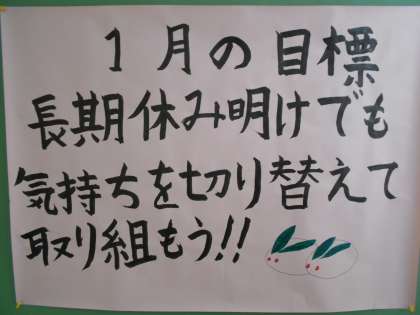 1月の目標
長期休み明けでも
気持ちを切り替えて
取り組もう!!